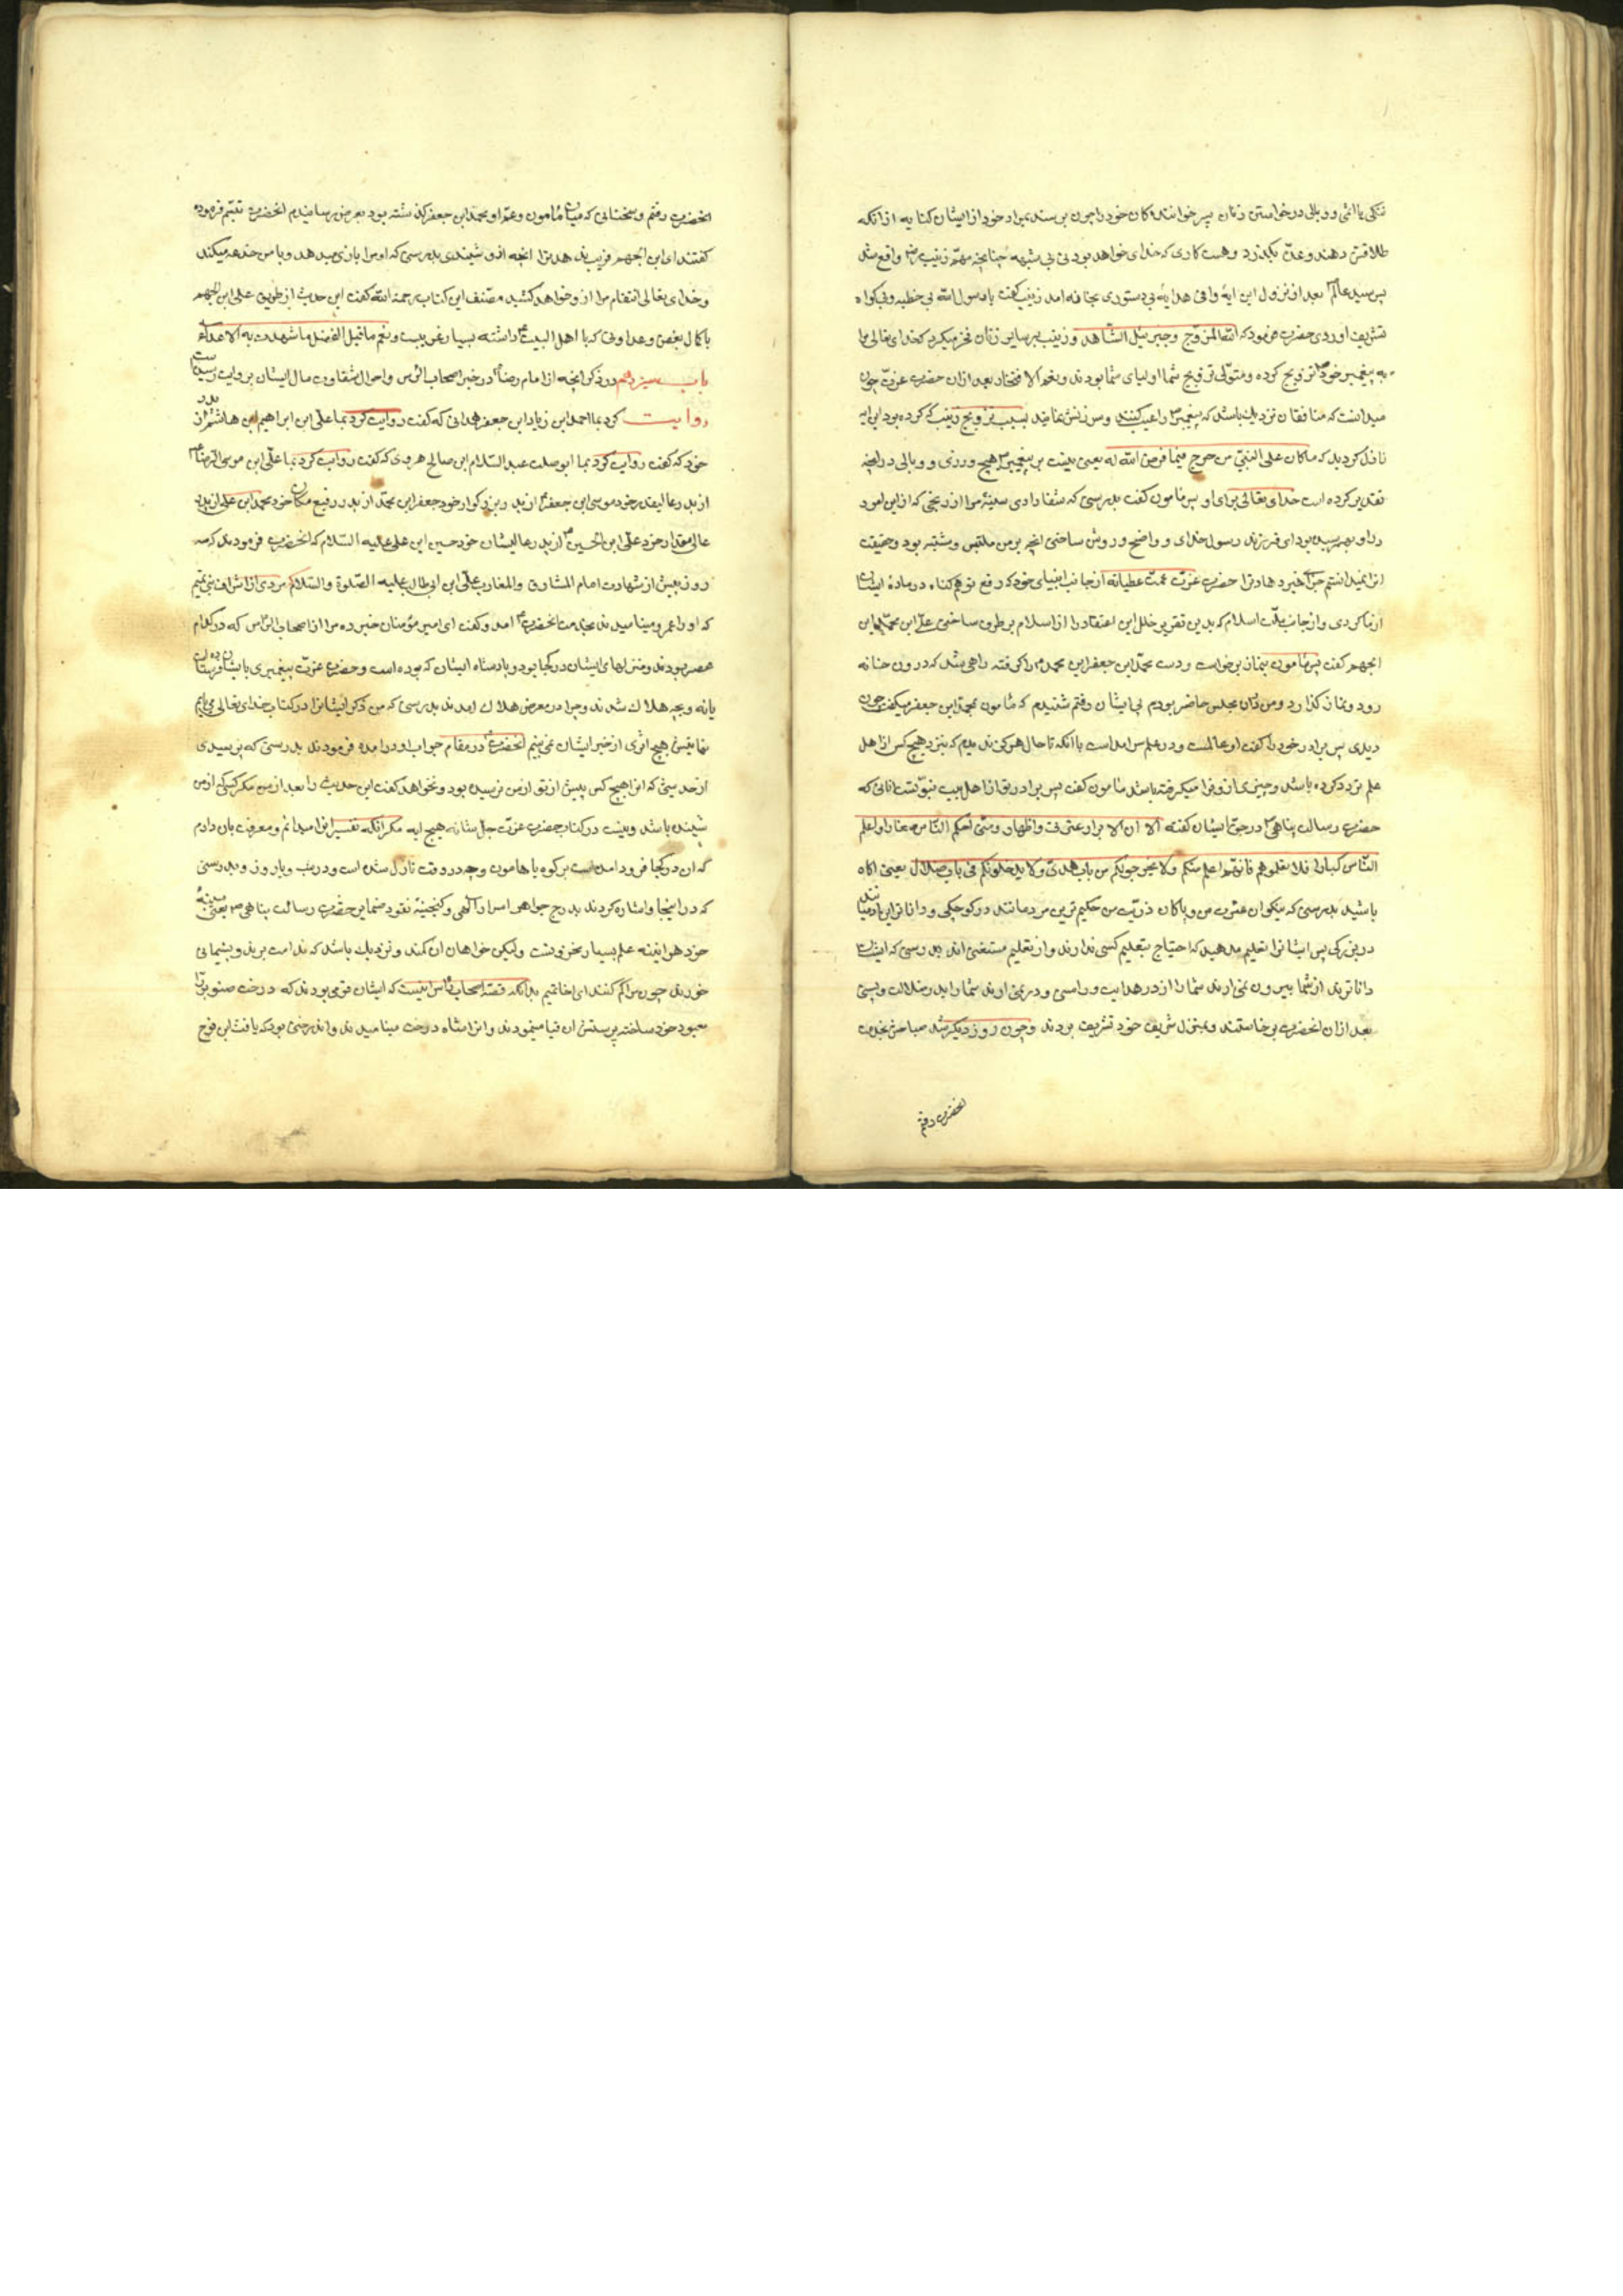 تنکی یا اثمی و وبالی در خواستن زنان پسر خواندهکان خود را چون برسند بمراد خود از ایشان کنایه از انکه
طلاقشان دهند و عده بکذرد و هست کاری که خدای خواهد بودنی بی شبهه چنانچه مهم زینب واقع شد
پس سید عالم بعد از نزول این ایهٔ وافی هدایه بی دستوری بخانه امد زینب کفت یا رسول الله بی خطبه و بی کواه
تشریف اوردی حضرت فرمود که الله المزوج و جبرئیل الشاهد و زینب بر سایر زنان فخر میکرد که خدای تعالی مرا
به پیغمبر خود تزویج کرده و متولی تزویج شما اولیای شما بودند و نعم الافتخار بعد ازان حضرت عزت چون
میدانست که منافقان نزدیک باشد که پیغمبر را عیب کنند و سرزنش نمایند بسبب تزویج زینب که کرده بود این ایه
نازل کردید که ما کان علی النبی من حرج فیما فرض الله له یعنی نیست بر پیغمبر هیچ وزری و وبالی در انچه
تقدیر کرده است خدای تعالی برای او پس مامون کفت بدرستی که شفا دادی سینهٔ مرا از رنجی که از این امور
در او بهم رسیده بود ای فرزند رسول خدای و واضح و روشن ساختی انچه بر من ملتبس و مشتبه بود و حقیقت
انرا نمیدانستم جزای خیر دهاد ترا حضرت عزت عمت عطیاته از جانب انبیای خود که رفع توهم کناه در مادهٔ ایشان
ازما کردی و از جانب ملت اسلام که بدین تقریر خلل این اعتقاد را از اسلام بر طرف ساختی علی ابن محمد ابن
الجهم کفت پس مامون بنماز برخواست و دست محمد ابن جعفر ابن محمد را کرفته راهی شد که درون خانه
رود و نماز کذارد و من دران مجلس حاضر بودم پی ایشان رفتم شنیدم که مامون بمحمد ابن جعفر میکفت چون
دیدی پسر برادر خود را کفت او عالمست و در علم سرامد است با انکه تا حال هرکز ندیدم که بنزد هیچ کس از اهل
علم تردد کرده باشد و چیزی ازو فرا میکرفته باشد مامون کفت پسر برادر تو از اهل بیت نبوتست انانی که
حضرت رسالت پناهی در حق ایشان کفته الا ان الابرار عترتی و اطهار ارومتی احکم الناس صغارا و اعلم
الناس کبارا فلا تعلموهم فانهم اعلم منکم ولا یخرجونکم من باب هدی ولا یدخلونکم فی باب ضلال یعنی اکاه
باشید بدرستی که نیکوان عترت من و پاکان ذریت من حکیم ترین مردمانند در کوچکی و داناترین ادمیانند
در بزرکی پس ایشانرا تعلیم مدهید که احتیاج بتعلیم کسی ندارند و از تعلیم مستغنی اند بدرستی که ایشان
داناترند از شما بیرون نمی ارند شما را از در هدایت و راستی و در نمی ارند شما را بدر ضلالت و پستی
بعد ازان انحضرت برخاستند و بمنزل شریف خود تشریف بردند و چون روز دیکر شد صباحش بخدمت
انحضرت رفتم
انحضرت رفتم و سخنانی که میان مامون و عم او محمد ابن جعفر کذشته بود بعرض رسانیدم انحضرت تبسم فرموده
کفتند ای ابن الجهم فریب ندهد ترا انچه ازو شنیدی بدرستی که او مرا بازی میدهد و با من خدعه میکند
و خدای تعالی انتقام مرا ازو خواهد کشید مصنف این کتاب رحمة الله کفت این حدیث از طریق علی ابن الجهم
با کمال بغض و عداوتی که با اهل البیت داشته بسیار غریبست و نعم ما قیل الفضل ما شهدت به الاعداء
باب سیزدهم در ذکر انچه از امام رضا در خبر اصحاب الرس و احوال شقاوت مال ایشان بروایت رسیده است
روایت کرد بما احمد ابن زیاد ابن جعفر همدانی که کفت روایت کرد بما علی ابن ابراهیم ابن هاشم از پدر
خود که کفت روایت کرد بما ابو صلت عبد السلام ابن صالح هروی که کفت روایت کرد بما علی ابن موسی الرضا
از پدر عالیقدر خود موسی ابن جعفر از پدر بزرکوار خود جعفر ابن محمد از پدر رفیع مکان خود محمد ابن علی از پدر
عالی مقدار خود علی ابن الحسین از پدر عالیشان خود حسین ابن علی علیه السلام که انحضرت فرمودند که سه
روز پیش از شهادت امام المشارق و المغارب علی ابن ابی طالب علیه الصلوة والسلام مردی از اشراف بنی تمیم
که او را عمرو مینامیدند بخدمت انحضرت امد و کفت ای امیر مؤمنان خبر ده مرا از اصحاب الرس که در کدام
عصر بودند و منزلهای ایشان در کجا بود و پادشاه ایشان که بوده است و حضرت عزت پیغمبری بایشان فرستاده
یا نه و بچه هلاک شدند و چرا در معرض هلاک امدند بدرستی که من ذکر ایشانرا در کتاب خدای تعالی می یابم
نهایتش هیچ اثری از خبر ایشان نمی بینم انحضرت در مقام جواب او در امده فرمودند بدرستی که پرسیدی
از حدیثی که انرا هیچ کس پیش از تو از من نپرسیده بود و نخواهد کفت این حدیث را بعد از من مکر کسی که از من
شنیده باشد و نیست در کتاب حضرت عزت جل شانه هیچ ایه مکر انکه تفسیر انرا میدانم و معرفت بان دارم
که ان در کجا فرود امده است بر کوه یا هامون و چه در وقت نازل شده است و در شب و یا روز و بدرستی
که در اینجا و اشاره کردند بدرج جواهر اسرار الهی و کنجینهٔ نقود ضمایر حضرت رسالت پناهی یعنی سینهٔ
خود هراینه علم بسیار مخزونست ولیکن خواهان ان کمند و نزدیک باشد که ندامت برند و پشیمانی
خورند چون مرا کم کنند ای اخا تمیم بدانکه قصهٔ اصحاب الرس اینست که ایشان قومی بودند که درخت صنوبر را
معبود خود ساخته پرستش ان قیام مینمودند و انرا شاه درخت مینامیدند و ان درختی بود که یافث ابن نوح